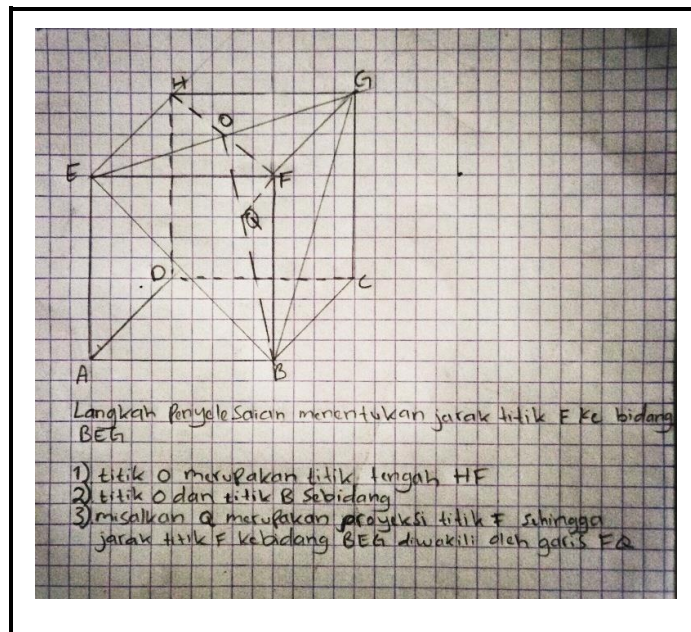 H
G
O
E
F
Q
D
C
A
B
Langkah Penyelesaian menentukan jarak titik F ke bidang
BEG
1) titik O merupakan titik tengah HF
2) titik O dan titik B sebidang
3) misalkan Q merupakan proyeksi titik F sehingga
jarak titik F kebidang BEG diwakili oleh garis FQ